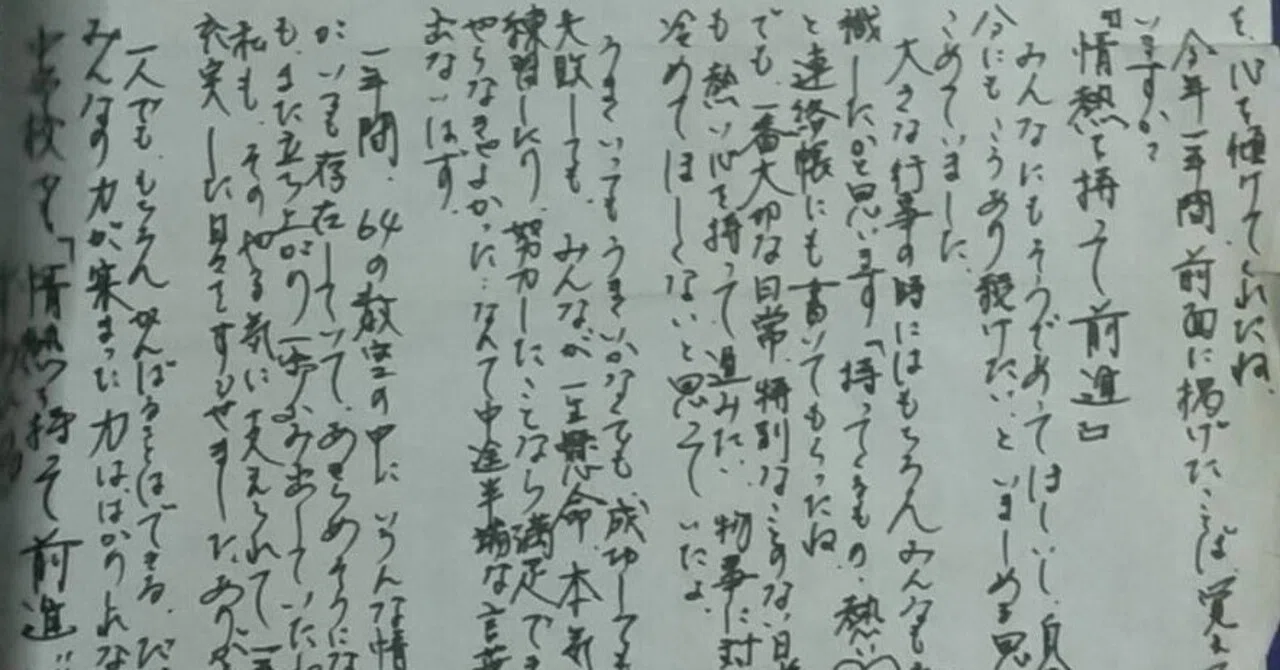 を、心を傾けてくれたね。
今年一年間、前面に掲げたことば、覚え
いますか？
『情熱を持って前進』
みんなにもそうであってほしいし、自
分にも、こうあり続けたい、といましめる思
こめていました。
大きな行事の時にはもちろんみんなも
識したかと思います「持ってるもの、熱い
と連絡帳にも書いてもらったね
でも、一番大切な日常、特別なことのない日
も熱い心を持って進みたい、物事に対
冷めてほしくないと思って いたよ。
うまくいってもうまくいかなくても、成功しても
失敗しても、みんなが一生懸命、本気
練習したり、努力したことなら満足でき
やらなきゃよかった…なんて中途半端な言葉
出ないはず。
一年間、64の教室の中に、いろんな情
がいつも存在していて、あきらめそうにな
も、また立ち上がり一歩ふみ出していたね
私も、そのやる気に支えられて一
充実した日々をすごせました。ありが
一人でも、もちろんがんばることはできる。だ
みんなの力が集まった力は、はかりしれな
中学校でも「情熱を持って前進」